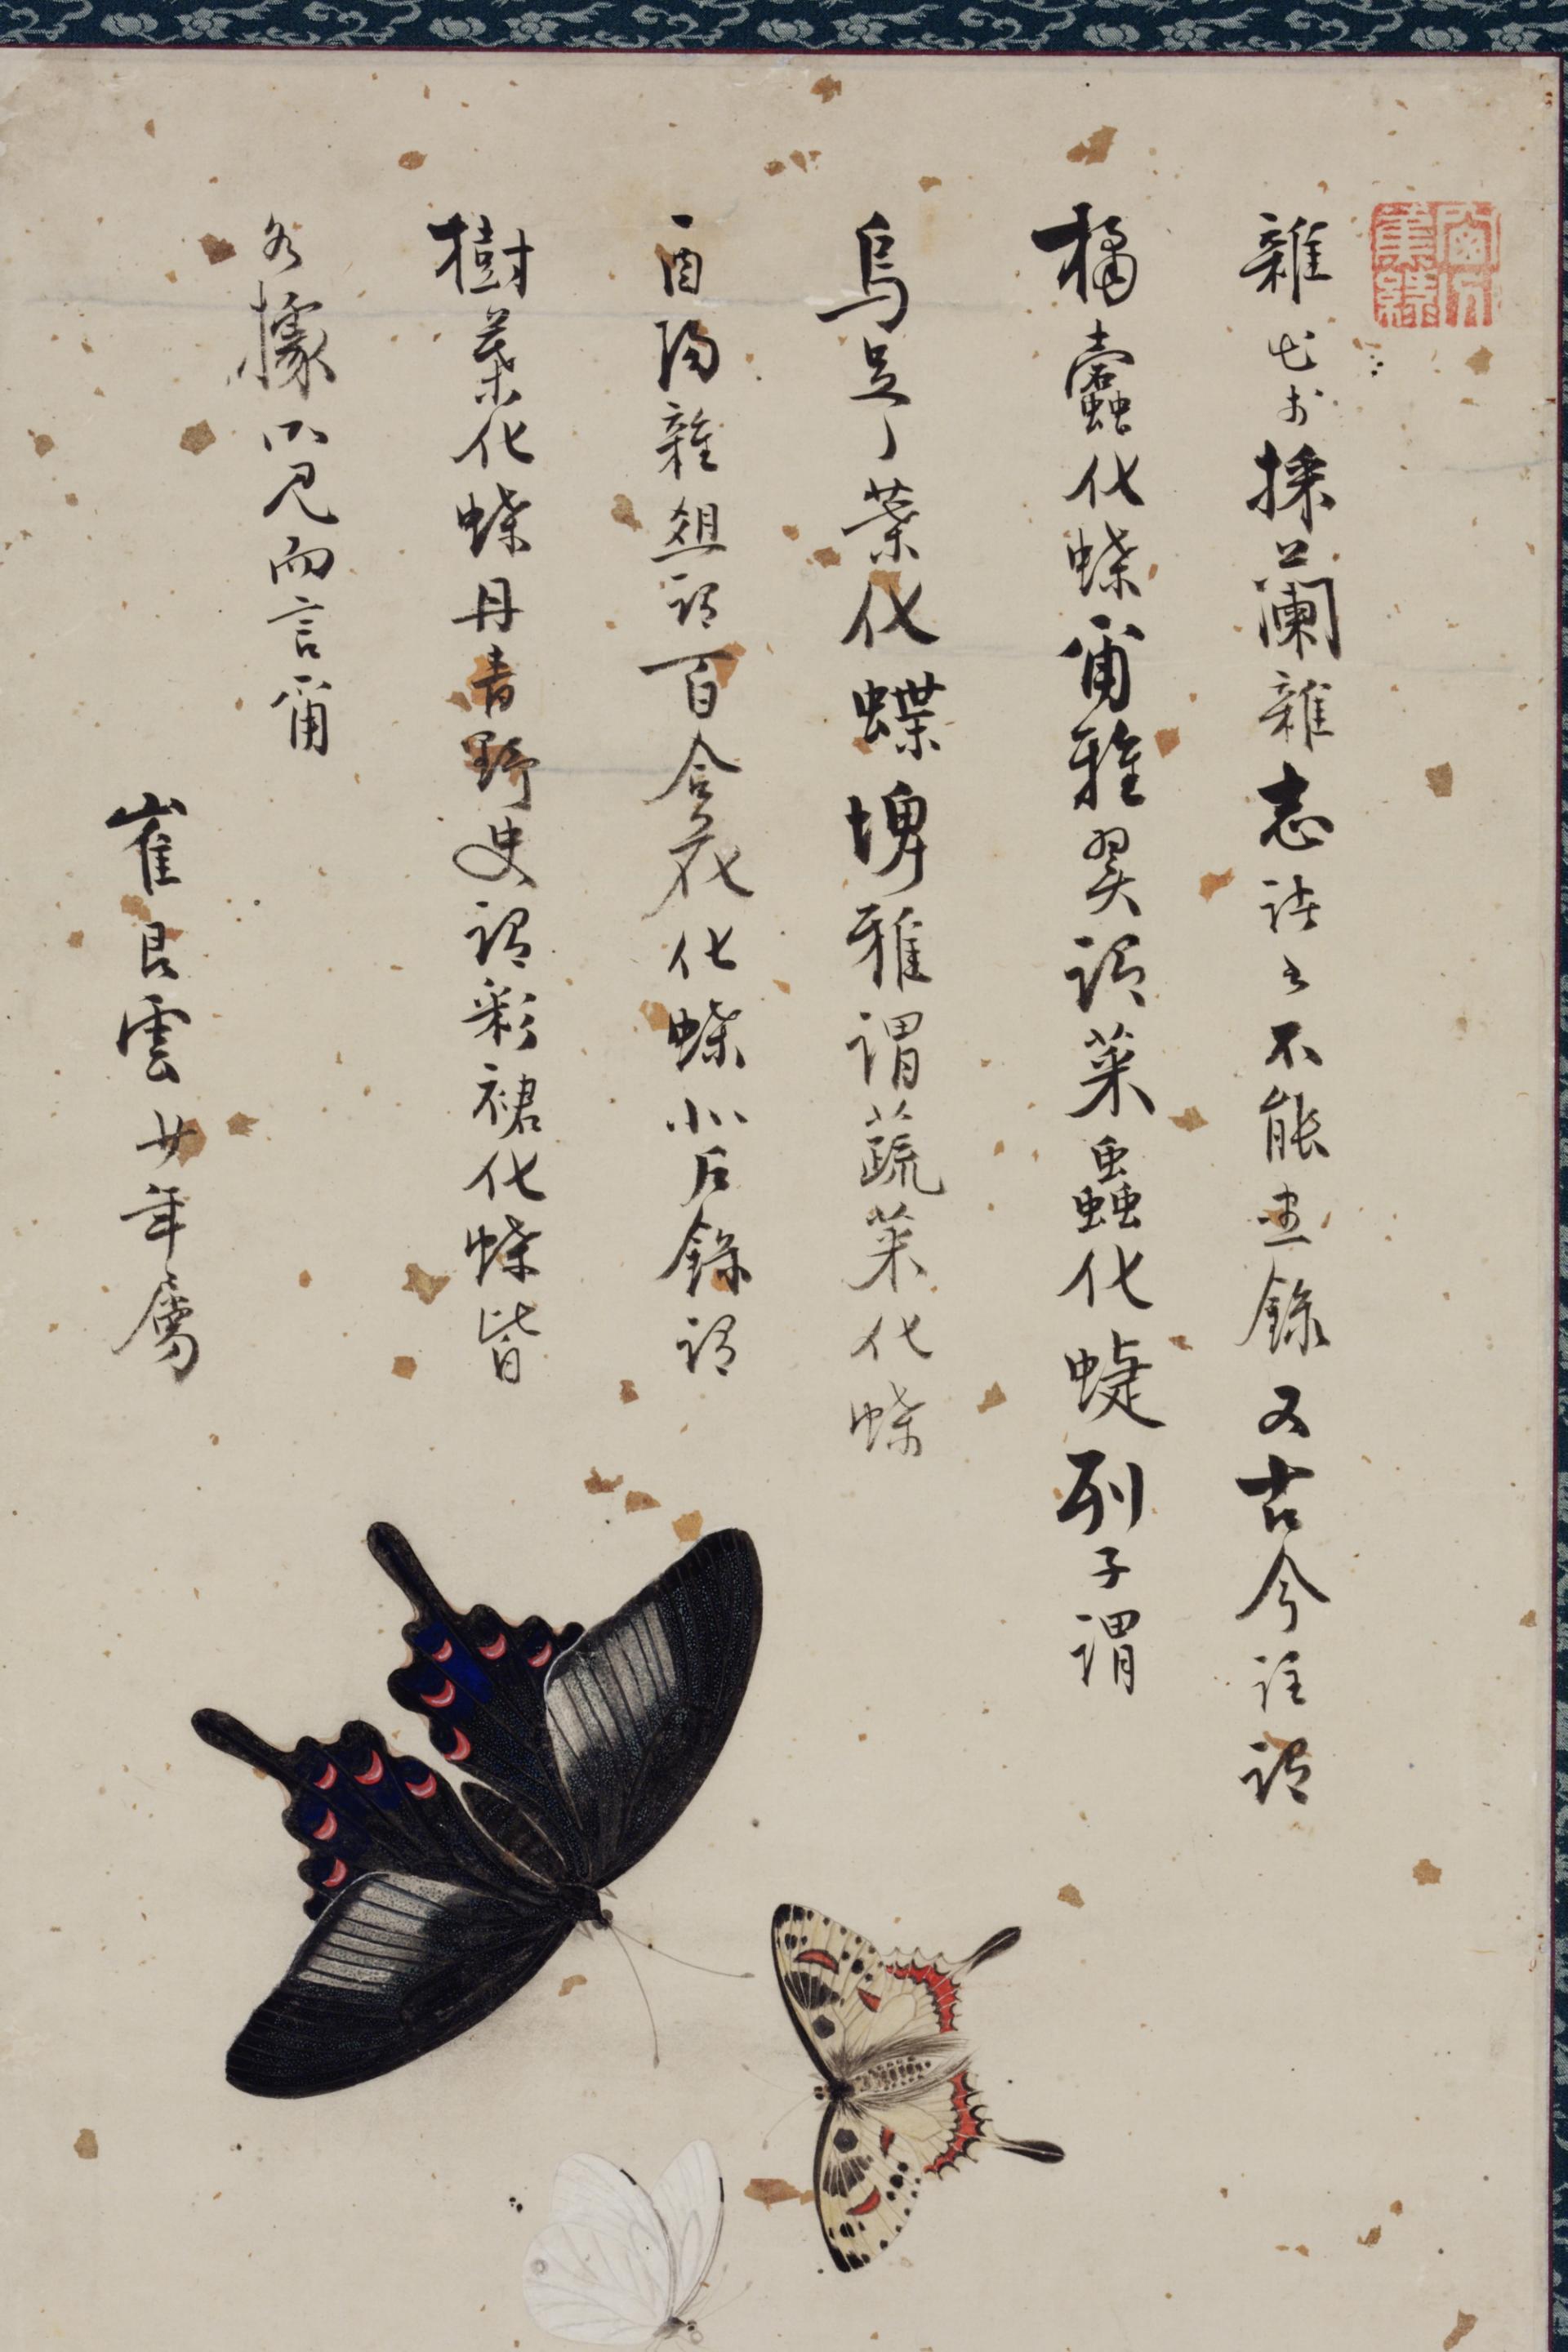 雜出於採蘭雜志諸書不能盡錄又古今注謂
橘蠹化蝶爾雅翼謂菜蟲化蜨列子謂
烏足之葉化蝶埤雅謂蔬菜化蝶
酉陽雜俎謂百合花化蝶北戶錄謂
樹葉化蝶丹青野史謂彩裙化蝶皆
各據所見而言爾
崔艮雲廿年屬